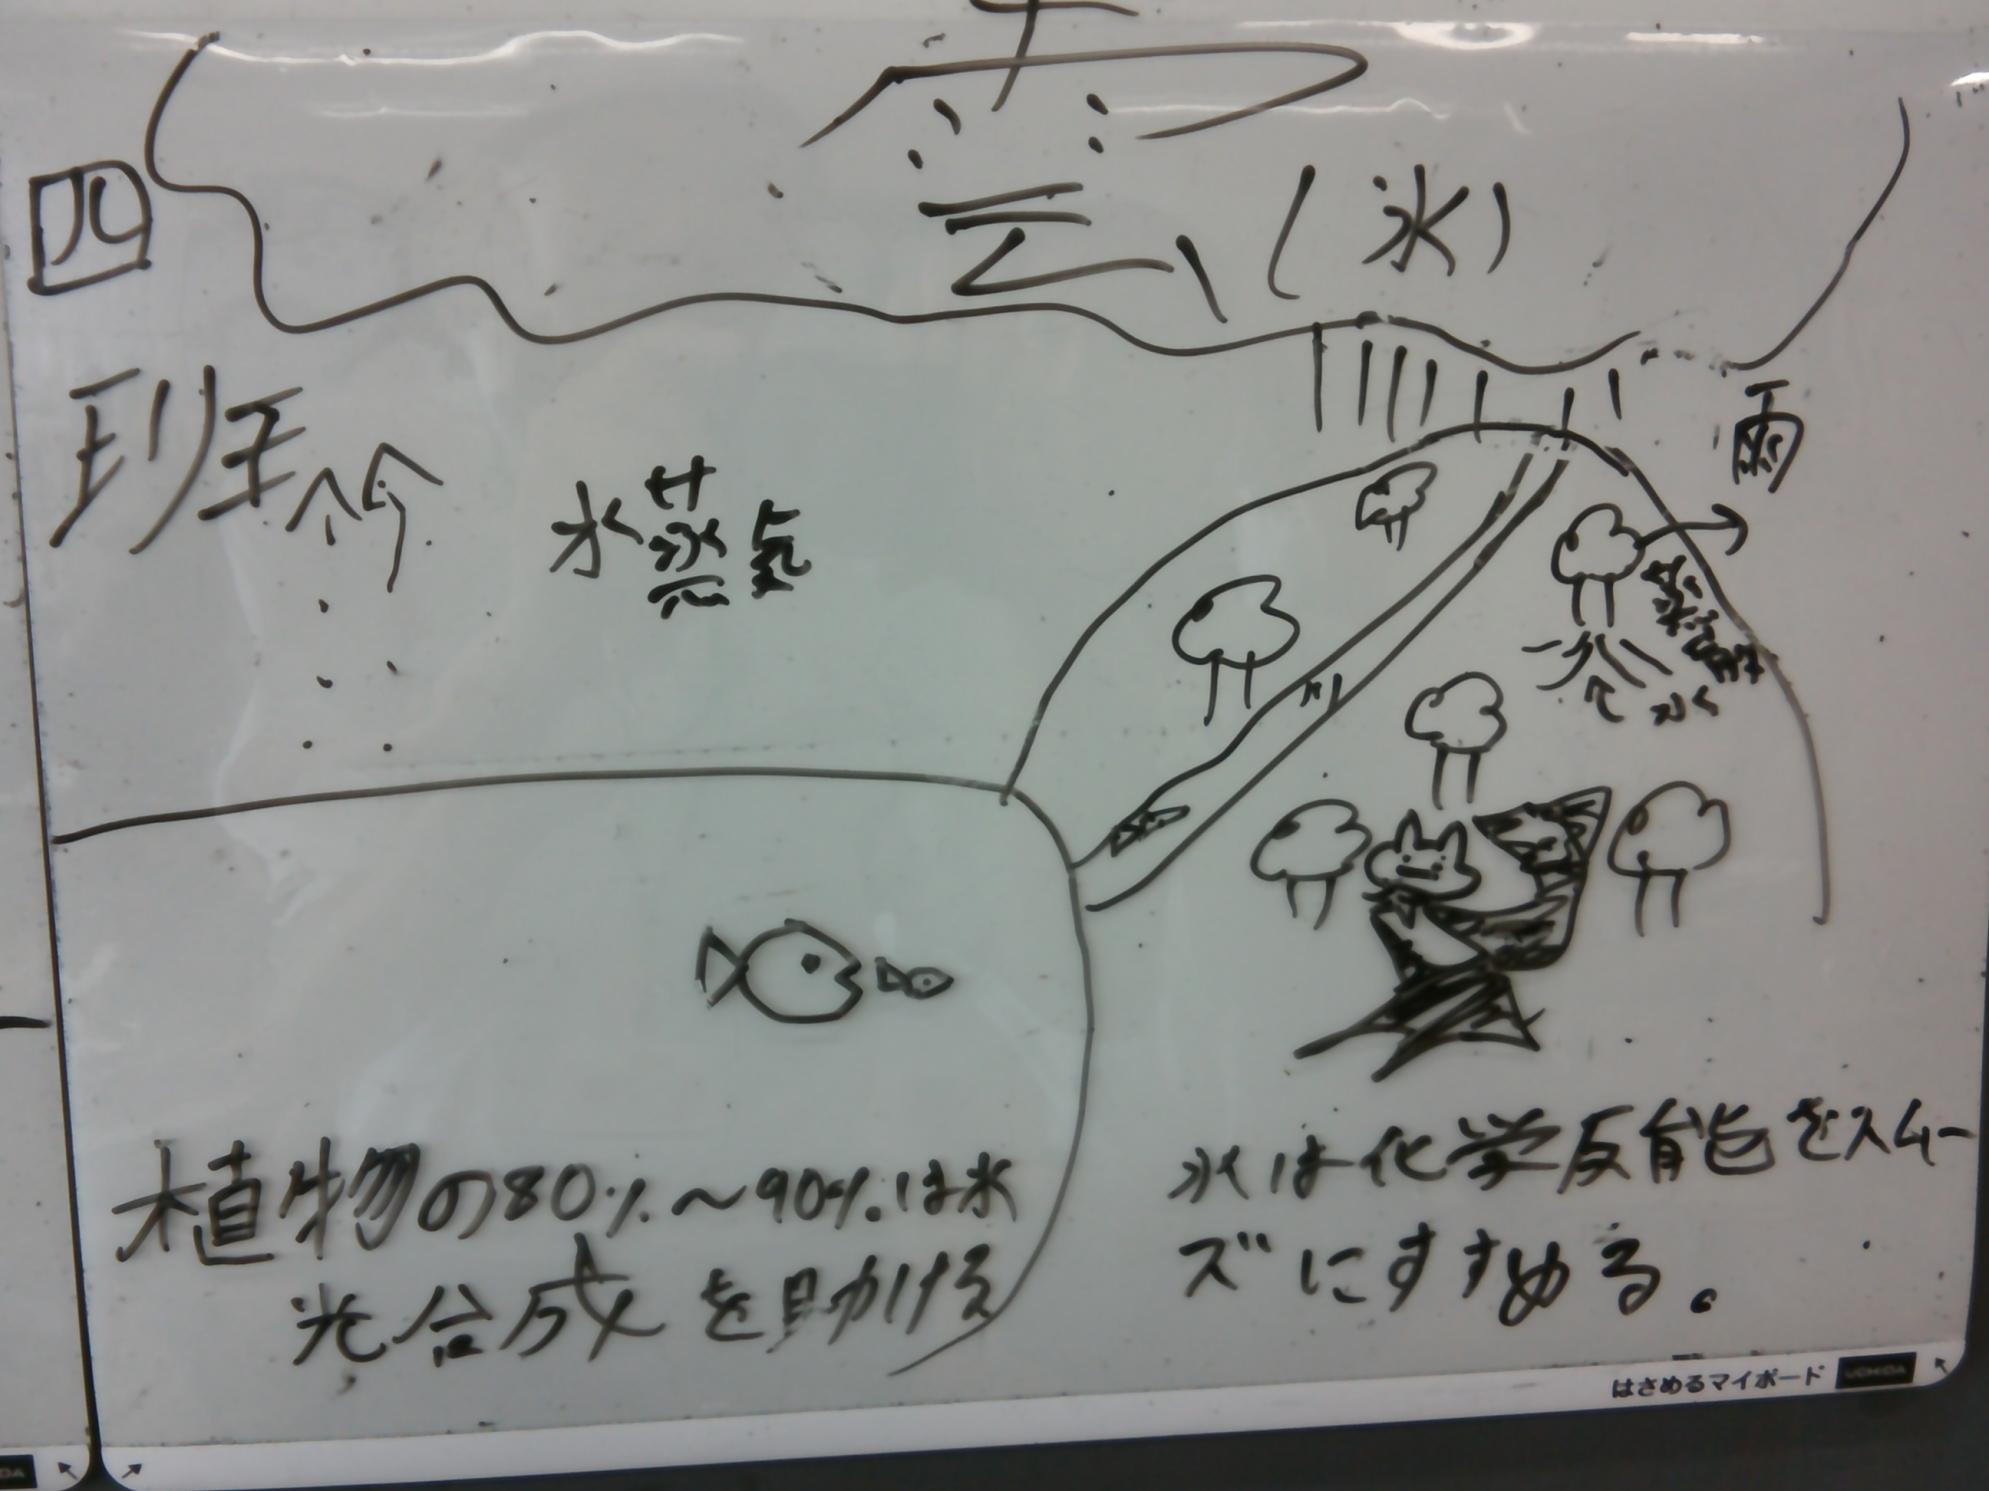 雲(氷)
四
班
雨
水蒸気
蒸散
川
水
植物の80%～90%は水
光合成を助ける
水は化学反能をスムー
ズにすすめる。
はさめるマイボード
UCHIDA